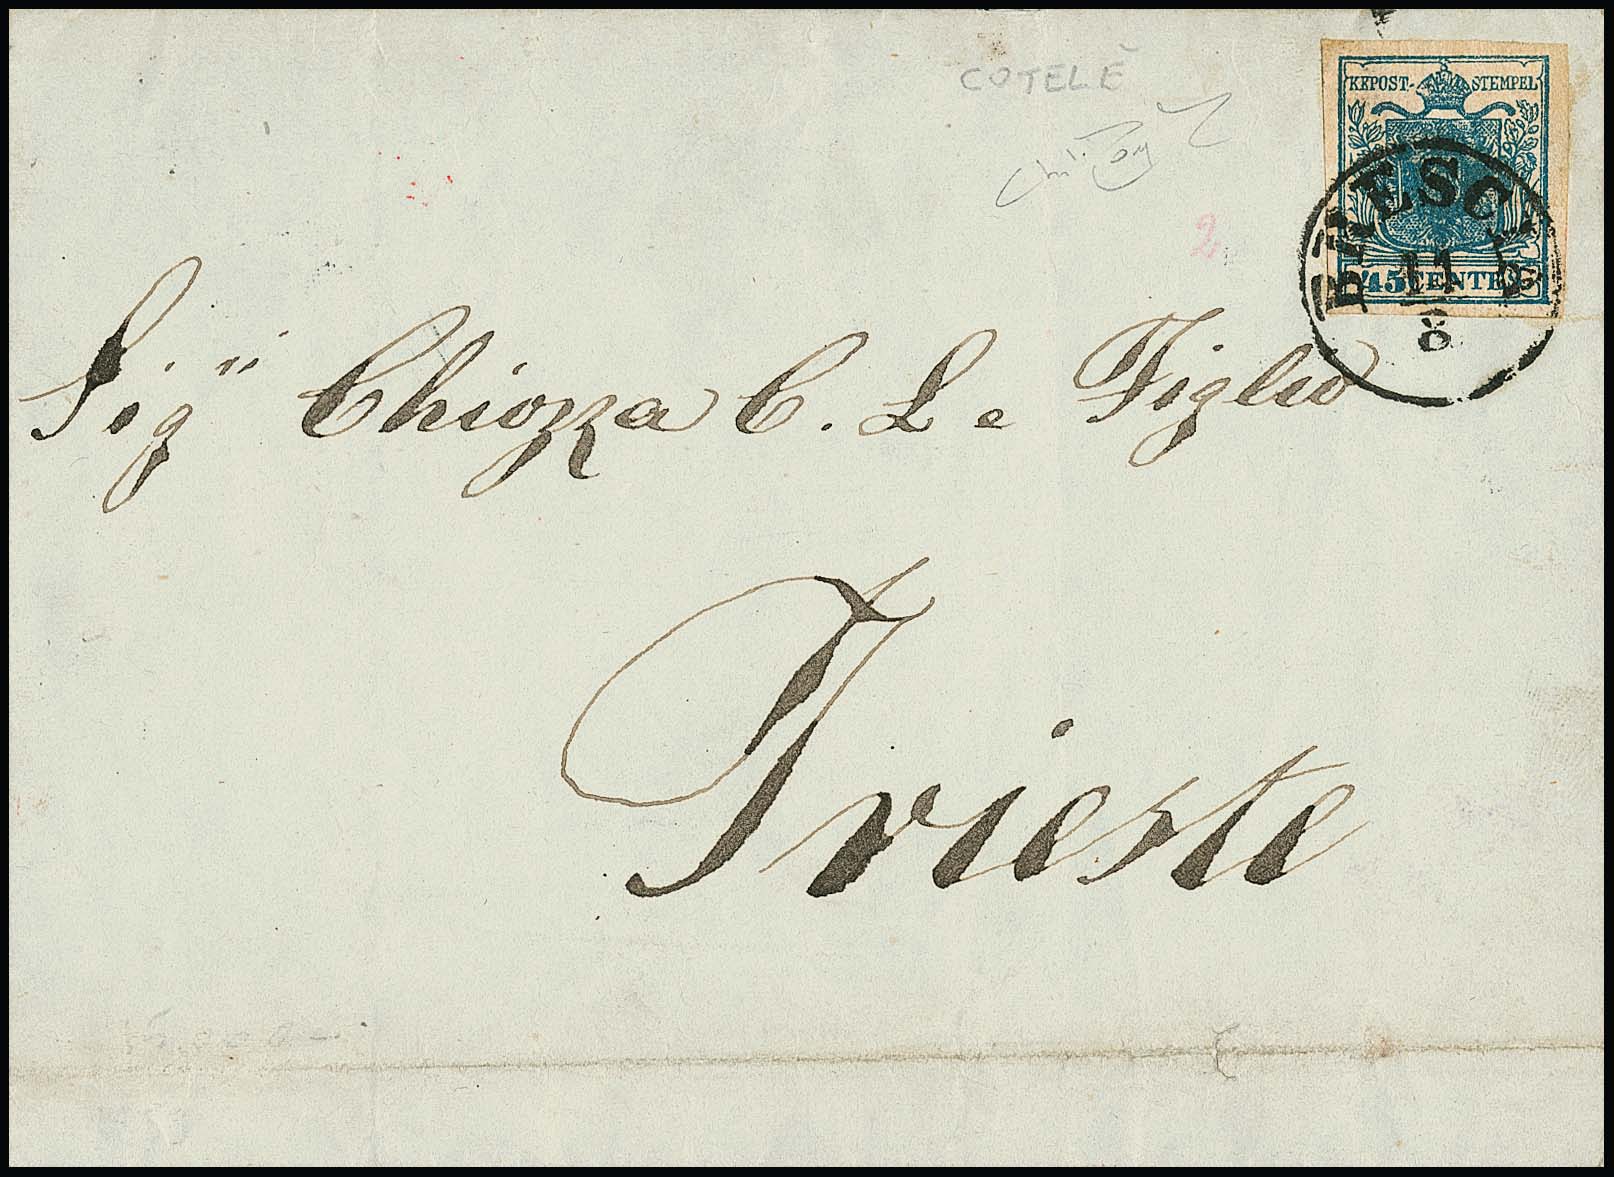 COTELÈ
KKPOST-STEMPEL
45 CENTES
BRESCIA
11
8
2
Sigri Chiozza C. L e Figlio
Trieste